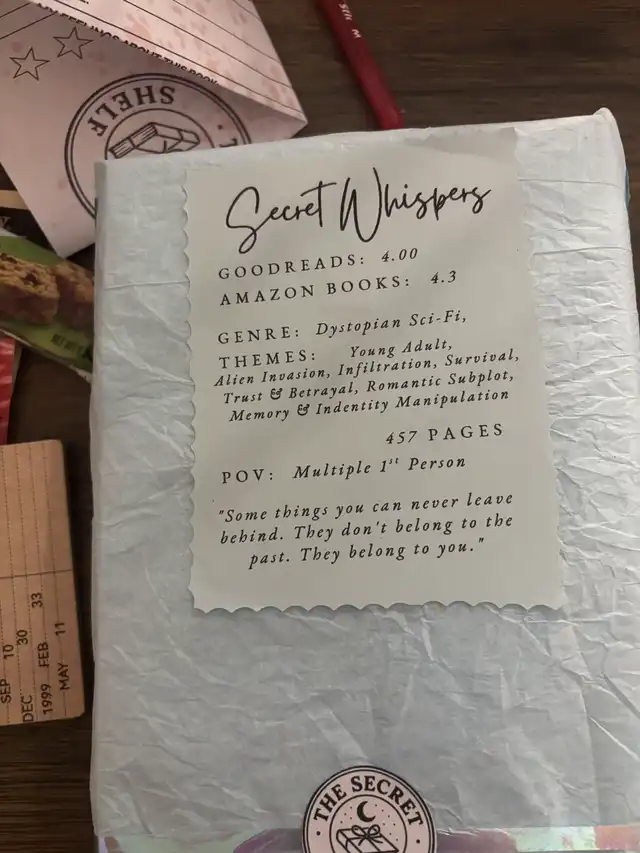 Stic M
MY FEELINGS ABOUT THIS BOOK
SHELF
Secret Whispers
GOODREADS: 4.00
AMAZON BOOKS: 4.3
GENRE: Dystopian Sci-Fi,
THEMES: Young Adult,
Alien Invasion, Infiltration, Survival,
Trust & Betrayal, Romantic Subplot,
Memory & Indentity Manipulation
457 PAGES
POV: Multiple 1st Person
"Some things you can never leave
behind. They don't belong to the
past. They belong to you."
SEP 10
DEC 30
1999 FEB 33
MAY 11
THE SECRET